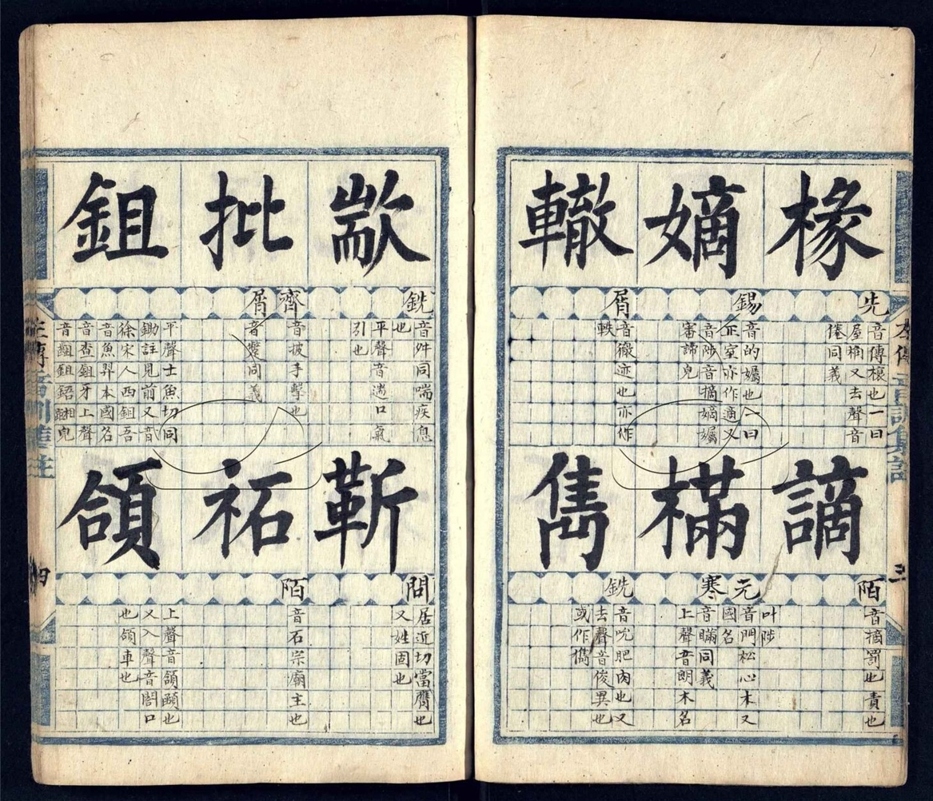 椽
先
音傳榱也一曰
屋桷又去聲音
倦同義
嫡
錫
音的孎也一曰
正室亦作適又
音陟音摘嫡孎
審諦皃
轍
屑
音徹迹也亦作
軼
謫
陌
音摘罰也責也
樠
元
寒
叶陟
音門松心木又
國名
音瞞同義
上聲音朗木名
雋
銑
音吮肥肉也又
去聲音俊異也
或作儁
歂
銑
音舛同喘疾息
也
平聲音遄口氣
引也
批
齊
屑
音披手擊也
音蹩同義
鉏
平聲士魚切同
鋤註見前又音
徐宋人西鉏吾
音魚羿本國名
音查鉏牙上聲
音齟鉏鋙相皃
靳
問
居近切當膺也
又姓固也
祏
陌
音石宗廟主也
頜
上聲音頷頤也
又入聲音閤口
也頜車也